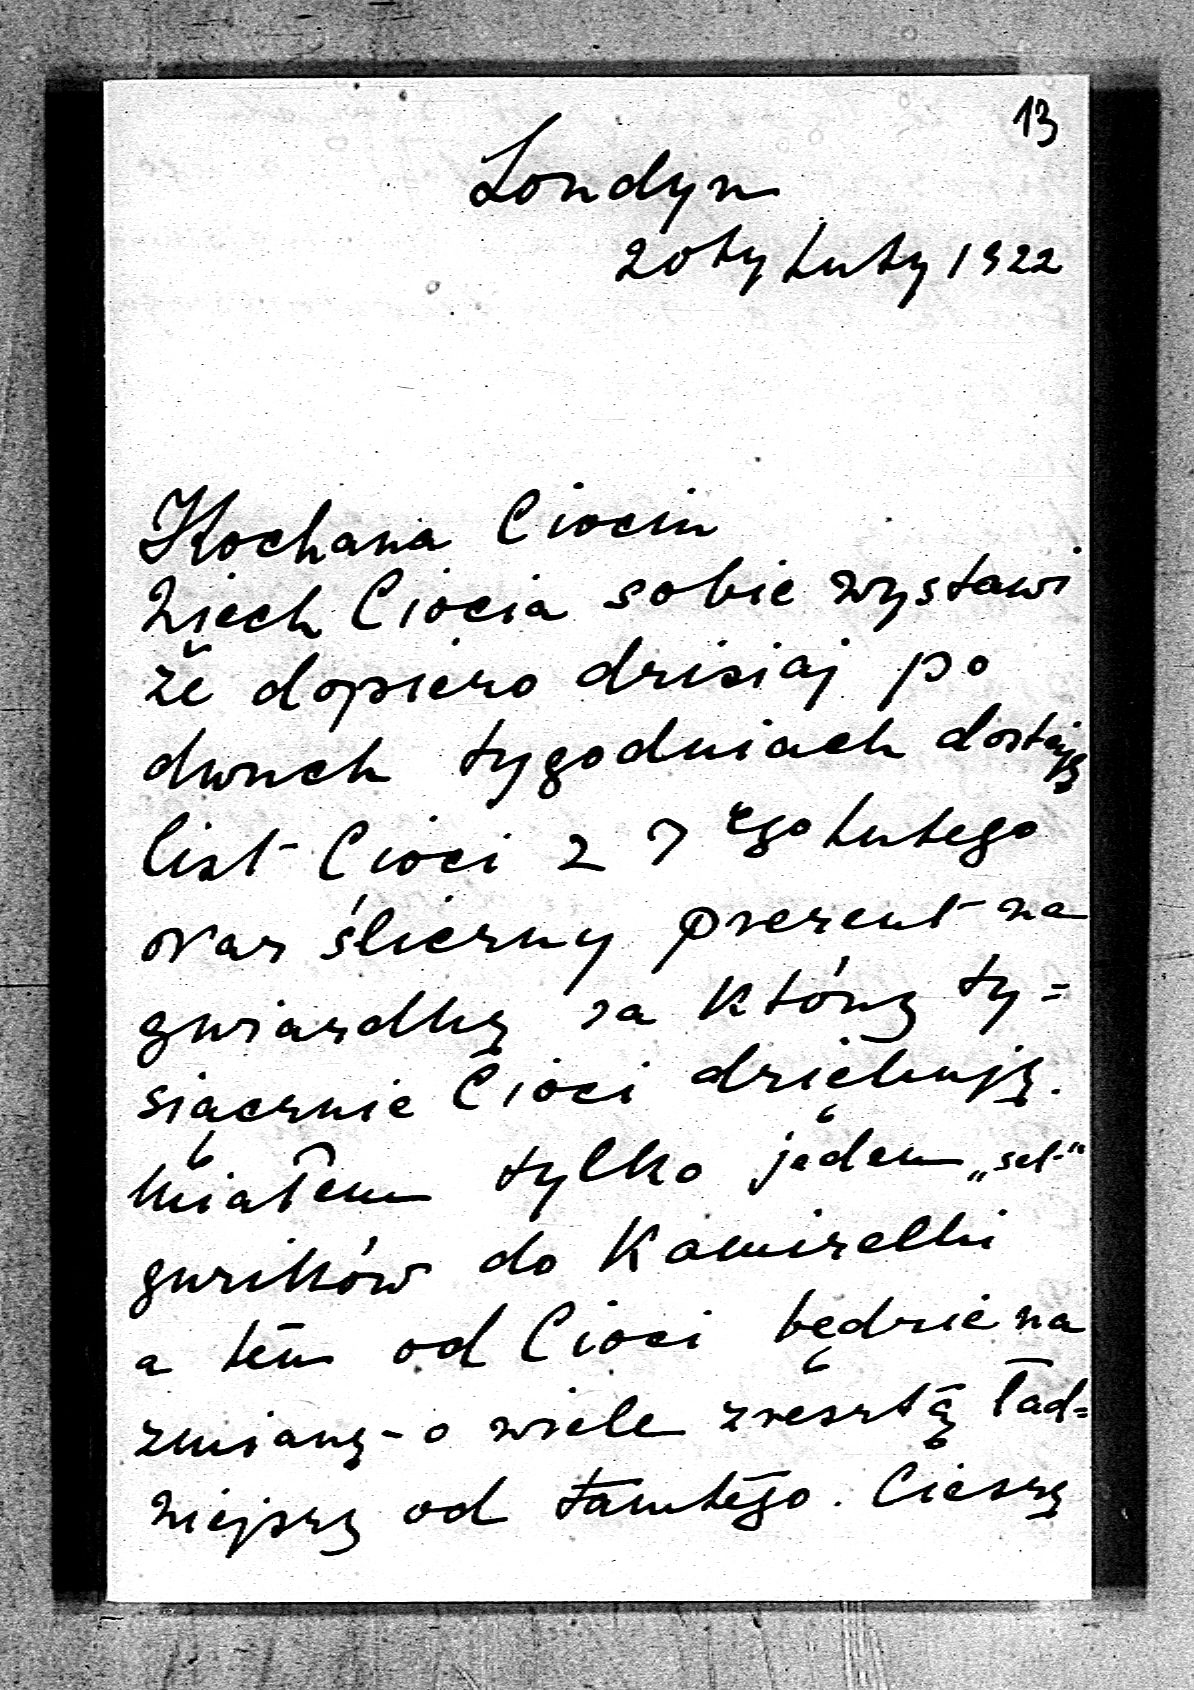 13
Londyn
20ty Luty 1922
Kochana Ciociu
Niech Ciocia sobie wystawi
że dopiero dzisiaj po
dwuch tygodniach dostaję
list Cioci z 7ego Lutego
oraz śliczny prezent na
gwiazdkę za którą ty=
siącznie Cioci dziękuję.
Miałem tylko jeden „set"
guzików do Kamizelki
a ten od Cioci będzie na
zmianę - o wiele zresztą ład=
niejszy od tamtego. Cieszę